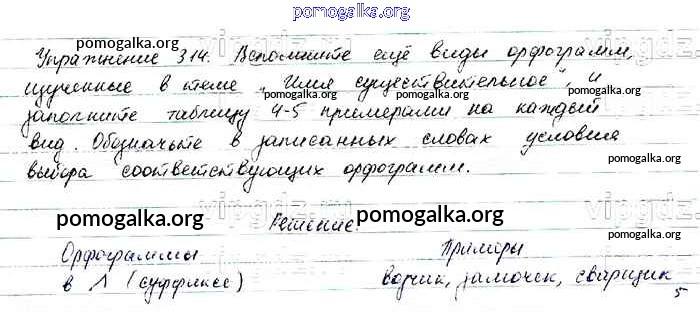 pomogalka.org
Упражнение 314. Вспомните ещё виды орфограмм,
pomogalka.org
pomogalka.org
изученные в теме „Имя существительное" и
pomogalka.org
заполните таблицу 4-5 примерами на каждый
вид. Обозначьте в записанных словах условия
выбора соответствующих орфограмм.
pomogalka.org
pomogalka.org Решение: pomogalka.org
Орфограммы Примеры
pomogalka.org
в Λ (суффиксе) водчик, замочек, сварщик
5